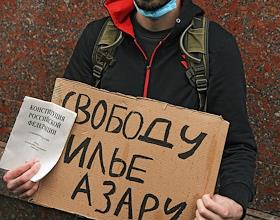 КОНСТИТУЦИЯ
РОССИЙСКОЙ
ФЕДЕРАЦИИ
СВОБОДУ
ИЛЬЕ
АЗАРУ